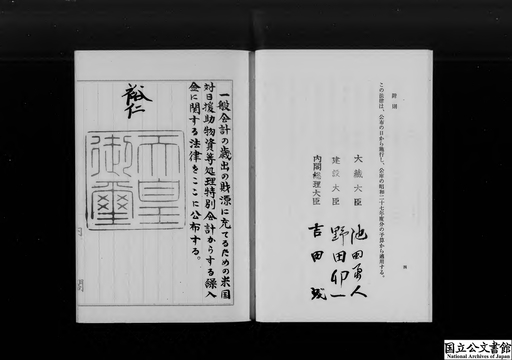 附則
この法律は、公布の日から施行し、公布の昭和二十七年度分の予算から適用する。
大藏大臣 池田勇人
建設大臣 野田卯一
内閣総理大臣 吉田茂
一般会計の歳出の財源に充てるための米国
対日援助物資等処理特別会計からする繰入
金に関する法律をここに公布する。
裕仁
天皇
御璽
国立公文書館
National Archives of Japan